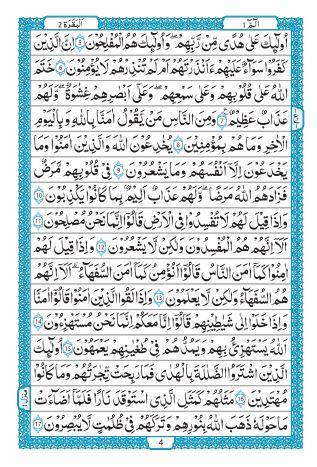 الٓمّٓ ١
اَلۡبَقَرَة ٢
اُولٰٓئِكَ عَلٰى هُدًى مِّنۡ رَّبِّهِمۡ ۙ وَاُولٰٓئِكَ هُمُ الۡمُفۡلِحُوۡنَ ۵ اِنَّ الَّذِيۡنَ
كَفَرُوۡا سَوَآءٌ عَلَيۡهِمۡ ءَاَنۡذَرۡتَهُمۡ اَمۡ لَمۡ تُنۡذِرۡهُمۡ لَا يُؤۡمِنُوۡنَ ۶ خَتَمَ
اللّٰهُ عَلٰى قُلُوۡبِهِمۡ وَعَلٰى سَمۡعِهِمۡ ؕ وَعَلٰٓى اَبۡصَارِهِمۡ غِشَاوَةٌ وَّلَهُمۡ
عَذَابٌ عَظِيۡمٌ ۷ وَمِنَ النَّاسِ مَنۡ يَّقُوۡلُ اٰمَنَّا بِاللّٰهِ وَبِالۡيَوۡمِ
الۡاٰخِرِ وَمَا هُمۡ بِمُؤۡمِنِيۡنَ ۸ يُخٰدِعُوۡنَ اللّٰهَ وَالَّذِيۡنَ اٰمَنُوۡا وَمَا
يَخۡدَعُوۡنَ اِلَّاۤ اَنۡفُسَهُمۡ وَمَا يَشۡعُرُوۡنَ ۹ فِىۡ قُلُوۡبِهِمۡ مَّرَضٌ
فَزَادَهُمُ اللّٰهُ مَرَضًا ۚ وَلَهُمۡ عَذَابٌ اَلِيۡمٌۢ بِمَا كَانُوۡا يَكۡذِبُوۡنَ ۱۰
وَاِذَا قِيۡلَ لَهُمۡ لَا تُفۡسِدُوۡا فِى الۡاَرۡضِ قَالُوۡاۤ اِنَّمَا نَحۡنُ مُصۡلِحُوۡنَ ۱۱
اَلَاۤ اِنَّهُمۡ هُمُ الۡمُفۡسِدُوۡنَ وَلٰكِنۡ لَّا يَشۡعُرُوۡنَ ۱۲ وَاِذَا قِيۡلَ لَهُمۡ
اٰمِنُوۡا كَمَاۤ اٰمَنَ النَّاسُ قَالُوۡاۤ اَنُؤۡمِنُ كَمَاۤ اٰمَنَ السُّفَهَآءُ ؕ اَلَاۤ اِنَّهُمۡ
هُمُ السُّفَهَآءُ وَلٰكِنۡ لَّا يَعۡلَمُوۡنَ ۱۳ وَاِذَا لَقُوا الَّذِيۡنَ اٰمَنُوۡا قَالُوۡاۤ اٰمَنَّا
وَاِذَا خَلَوۡا اِلٰى شَيٰطِيۡنِهِمۡ قَالُوۡاۤ اِنَّا مَعَكُمۡ اِنَّمَا نَحۡنُ مُسۡتَهۡزِءُوۡنَ ۱۴
اَللّٰهُ يَسۡتَهۡزِئُ بِهِمۡ وَيَمُدُّهُمۡ فِىۡ طُغۡيَانِهِمۡ يَعۡمَهُوۡنَ ۱۵ اُولٰٓئِكَ
الَّذِيۡنَ اشۡتَرَوُا الضَّلٰلَةَ بِالۡهُدٰى فَمَا رَبِحَتۡ تِّجَارَتُهُمۡ وَمَا كَانُوۡا
مُهۡتَدِيۡنَ ۱۶ مَثَلُهُمۡ كَمَثَلِ الَّذِى اسۡتَوۡقَدَ نَارًا فَلَمَّاۤ اَضَآءَتۡ
مَا حَوۡلَهٗ ذَهَبَ اللّٰهُ بِنُوۡرِهِمۡ وَتَرَكَهُمۡ فِىۡ ظُلُمٰتٍ لَّا يُبۡصِرُوۡنَ ۱۷
4